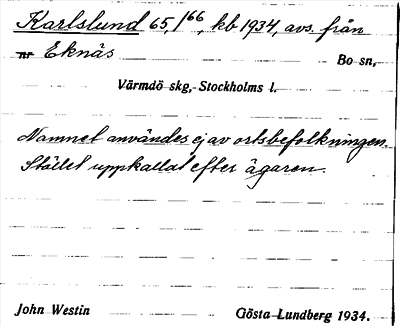 Karlslund 65,1⁶⁶, kb 1934, avs. från
nr Eknäs
Bo sn,
Värmdö skg, Stockholms l.
Namnet användes ej av ortsbefolkningen.
Stället uppkallat efter ägaren.
John Westin Gösta Lundberg 1934.